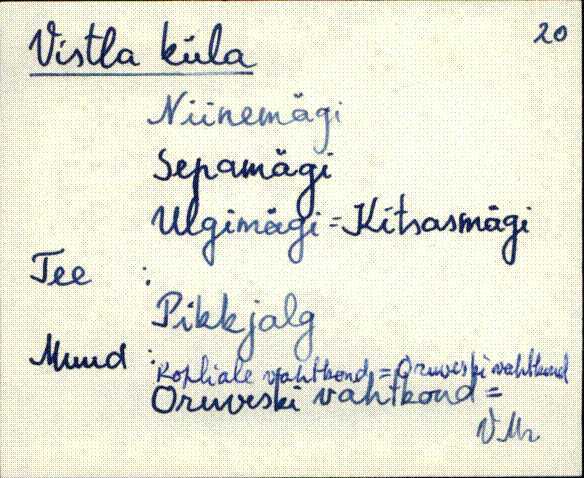 Vistla küla 20
Niinemägi
Sepamägi
Ulgimägi = Kitsasmägi
Tee :
Pikkjalg
Muud :
Kopliale vahtkond = Oruveski vahtkond
Oruveski vahtkond =
V.Mr